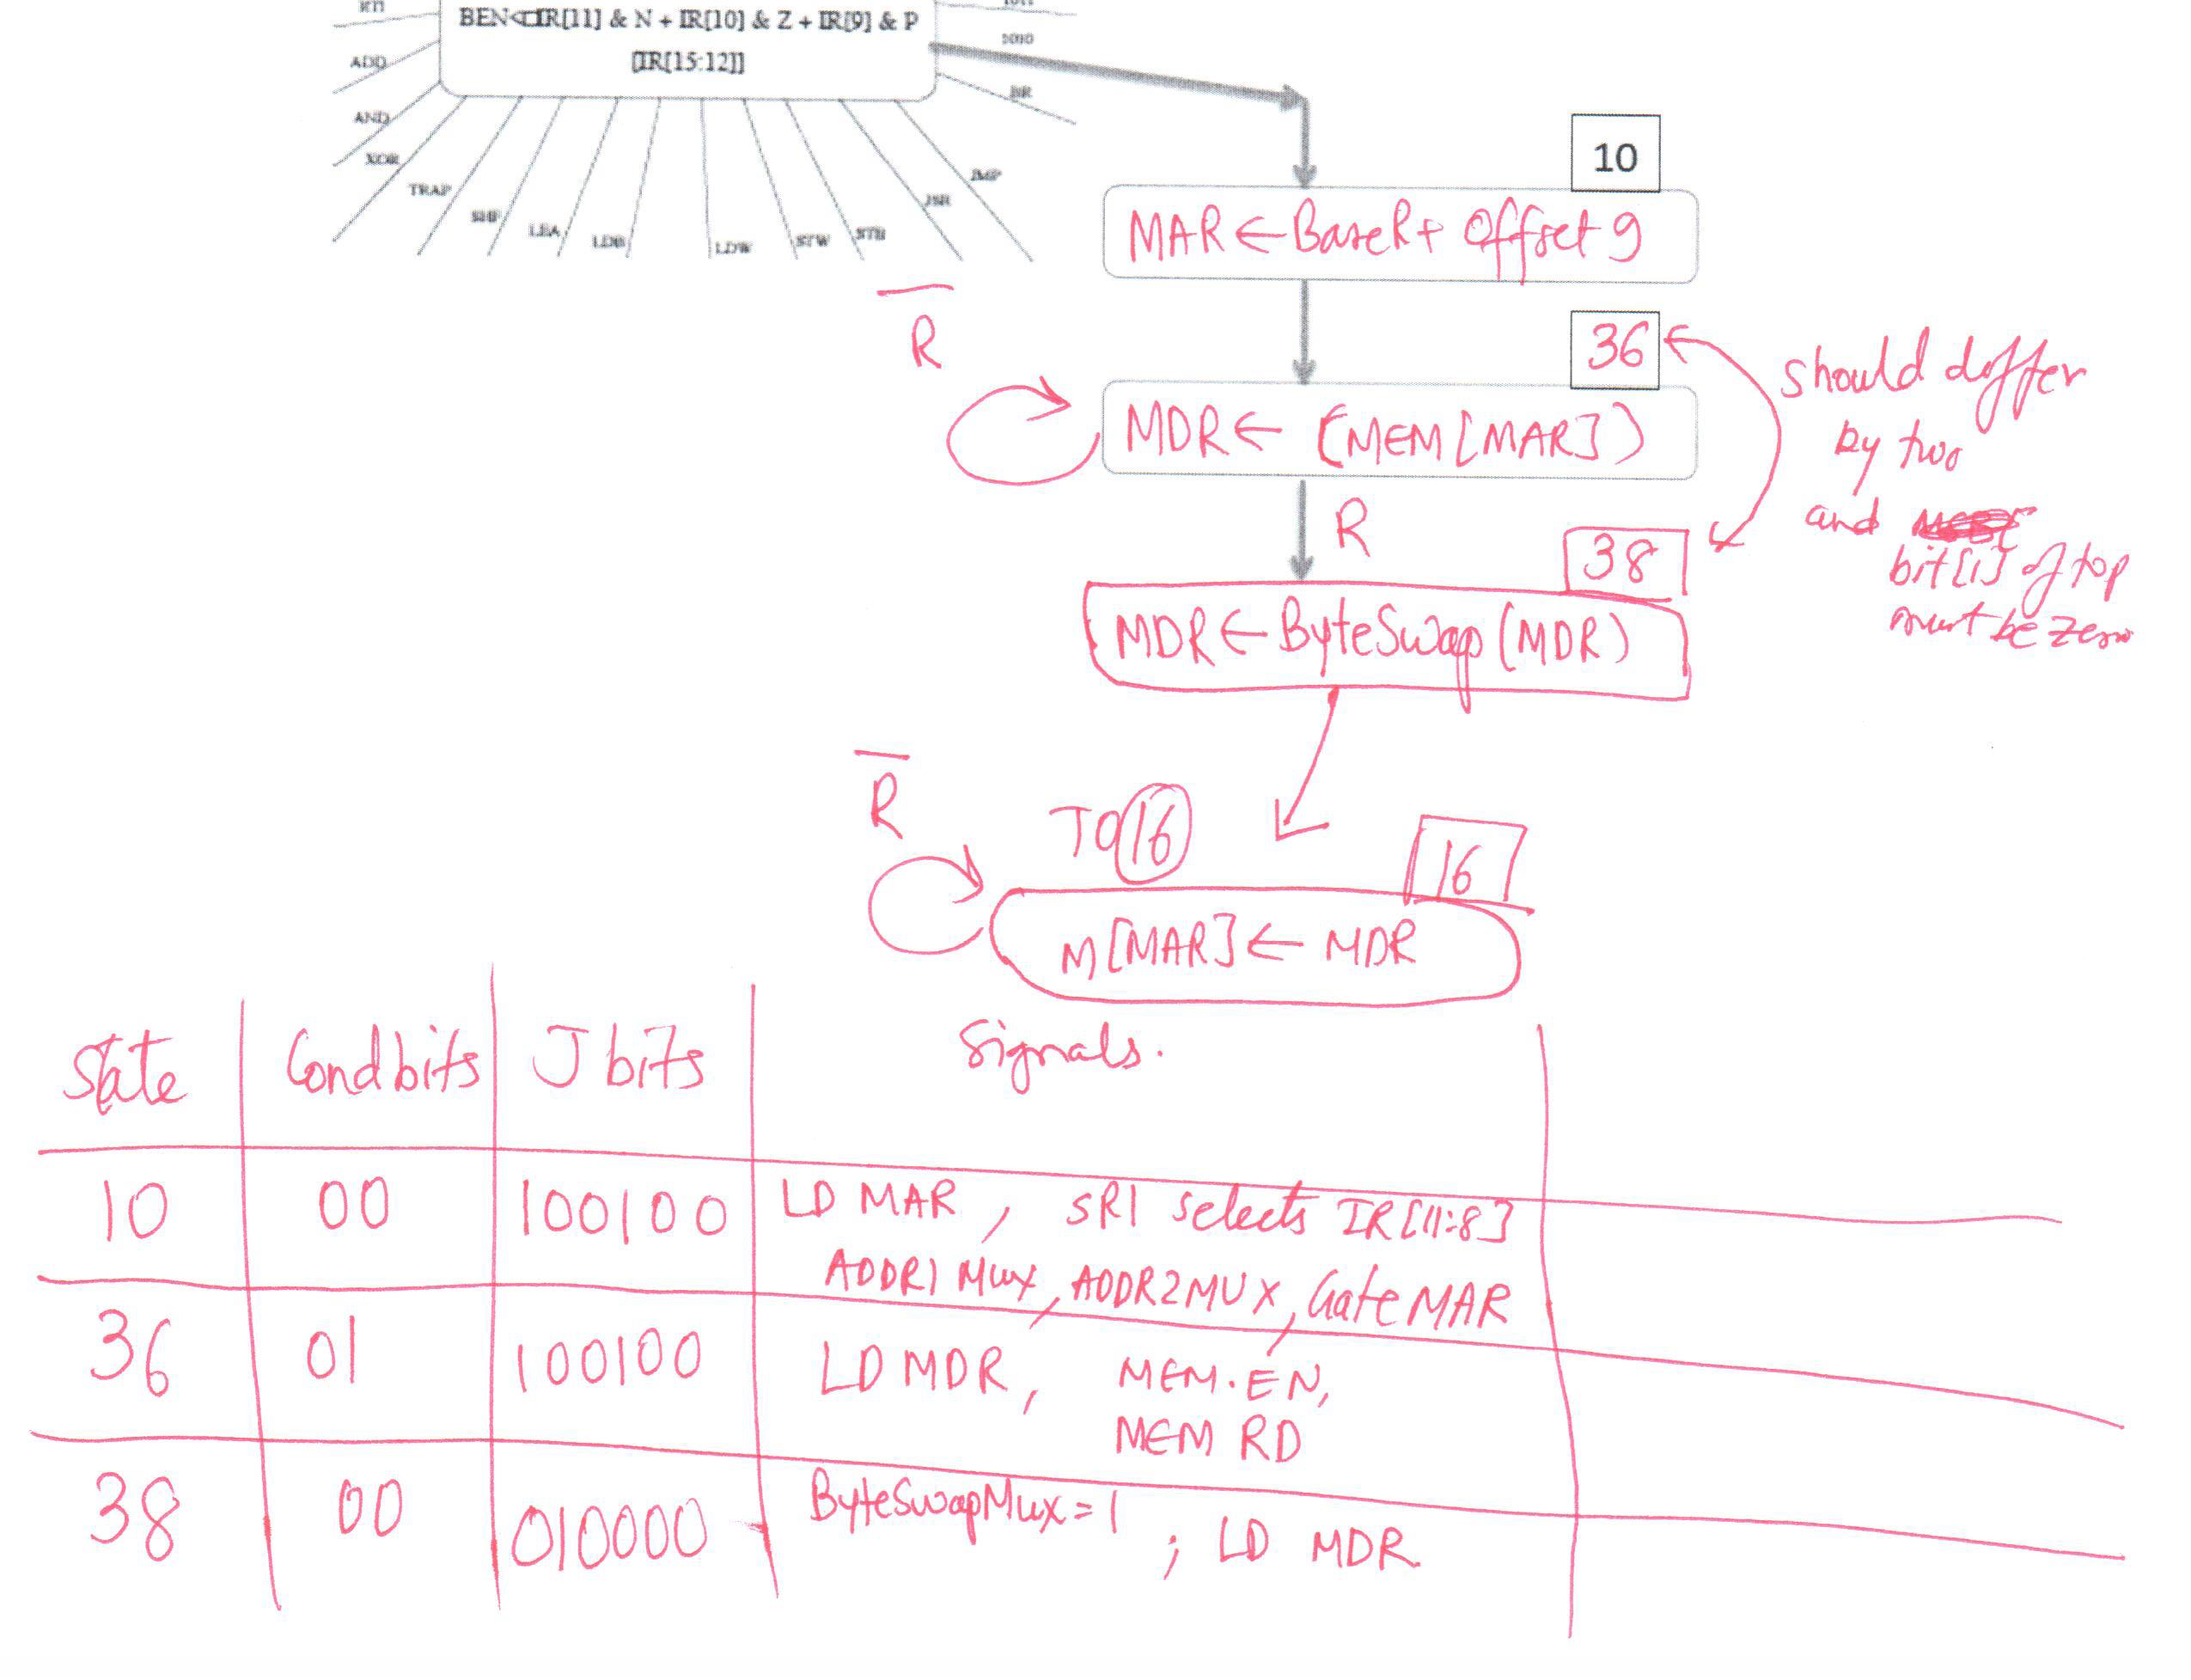 RTI
BEN<IR[11] & N + IR[10] & Z + IR[9] & P
[IR[15:12]]
1010
ADD
BR
AND
XOR
TRAP
SHF
LEA
LDB
LDW
STW
STB
JSR
JMP
10
MAR ← BaseR + Offset 9
R
36
MDR ← (MEM[MAR])
should differ
by two
and
bit[1] of top
must be zero
R
38
MDR ← ByteSwap (MDR)
R
TO 16
16
M[MAR] ← MDR
State Condbits J bits Signals.
10 00 100100 LD MAR, SR1 selects IR[11:8]
ADDR1 Mux, ADDR2MUX, GateMAR
36 01 100100 LD MDR, MEM.EN,
MEM RD
38 00 010000 ByteSwapMux = 1 ; LD MDR